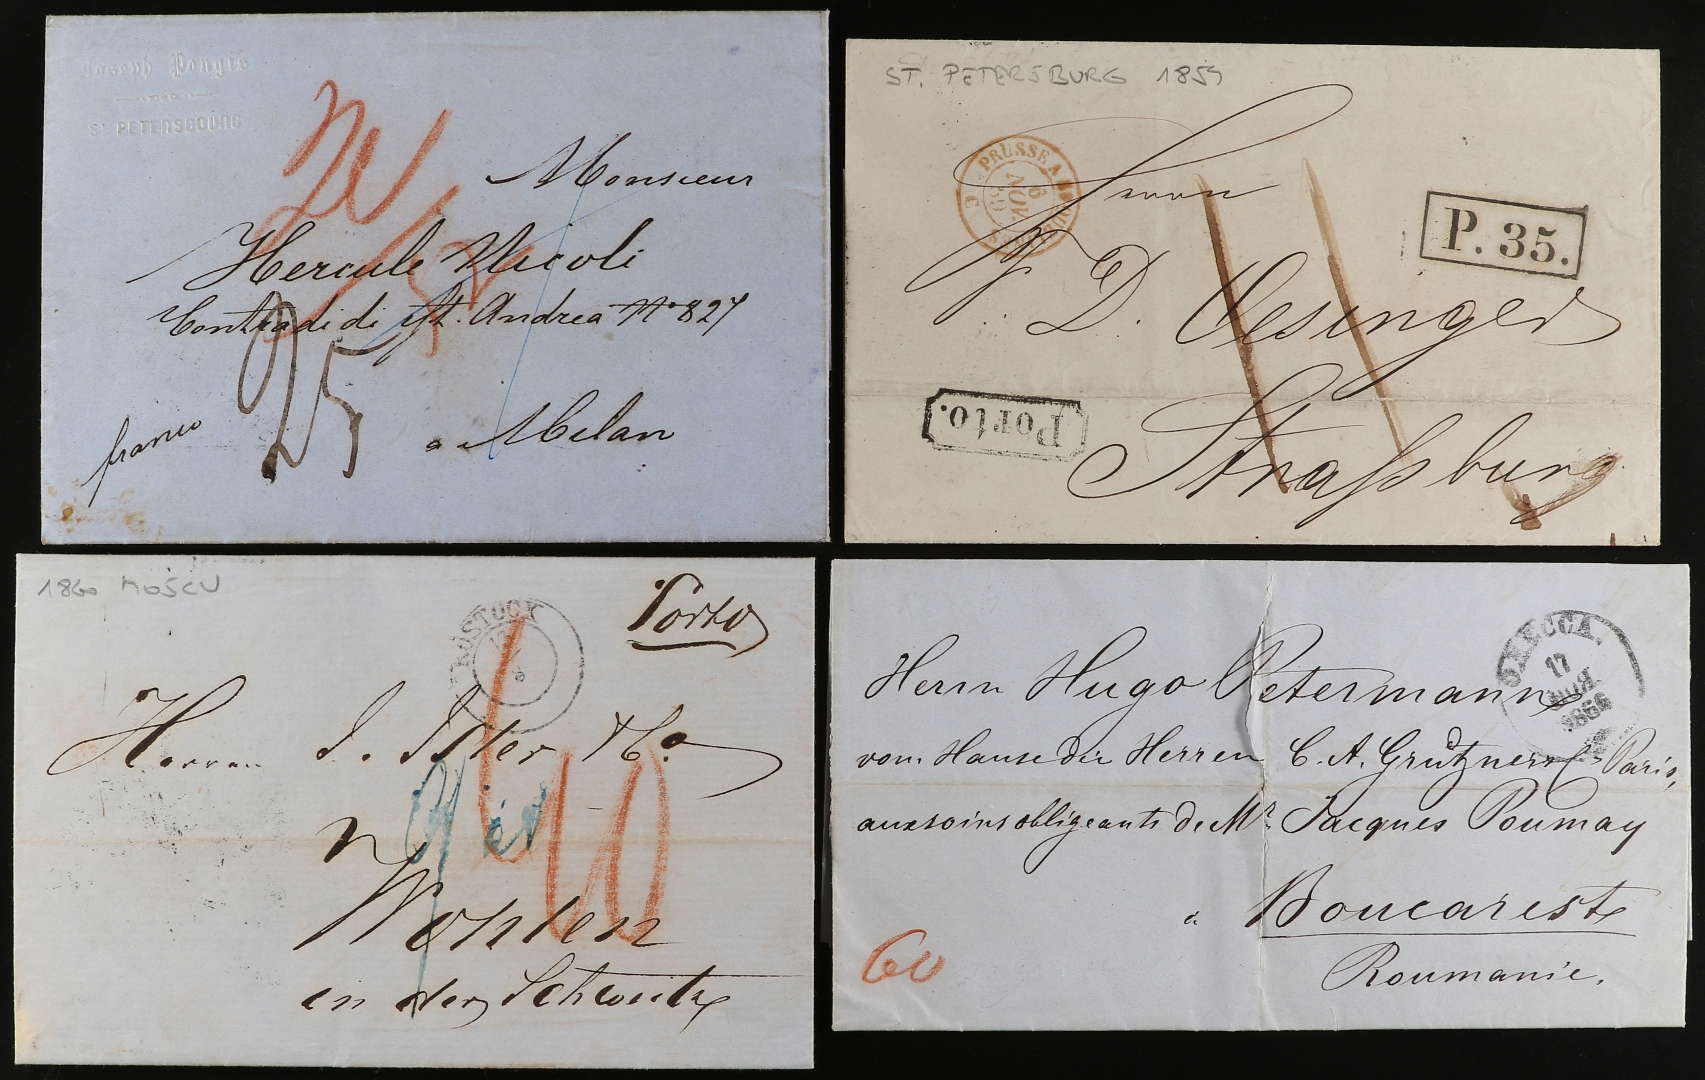 Joseph Pougis
ST PETERSBOURG
Monsieur
Hercule Nicoli
Contradi di St. Andrea No 827
25
franco
a Milan
ST. PETERSBURG 1859
PRUSSE
6
NOV
P. 35.
Herrn
D. Oesinger
Porto.
Straßburg
1860 MOSCU
ROSTOCK
Porto
Herren J. Isler & Co.
Wohlen
in der Schweitz
ОДЕССА.
17
НОЯ.
1866
Herrn Hugo Petermann
vom Hause der Herren C. A. Grützner Paris,
aux soins obligeants de Mr. Jacques Poumay
à Boucarest
Roumanie.
60